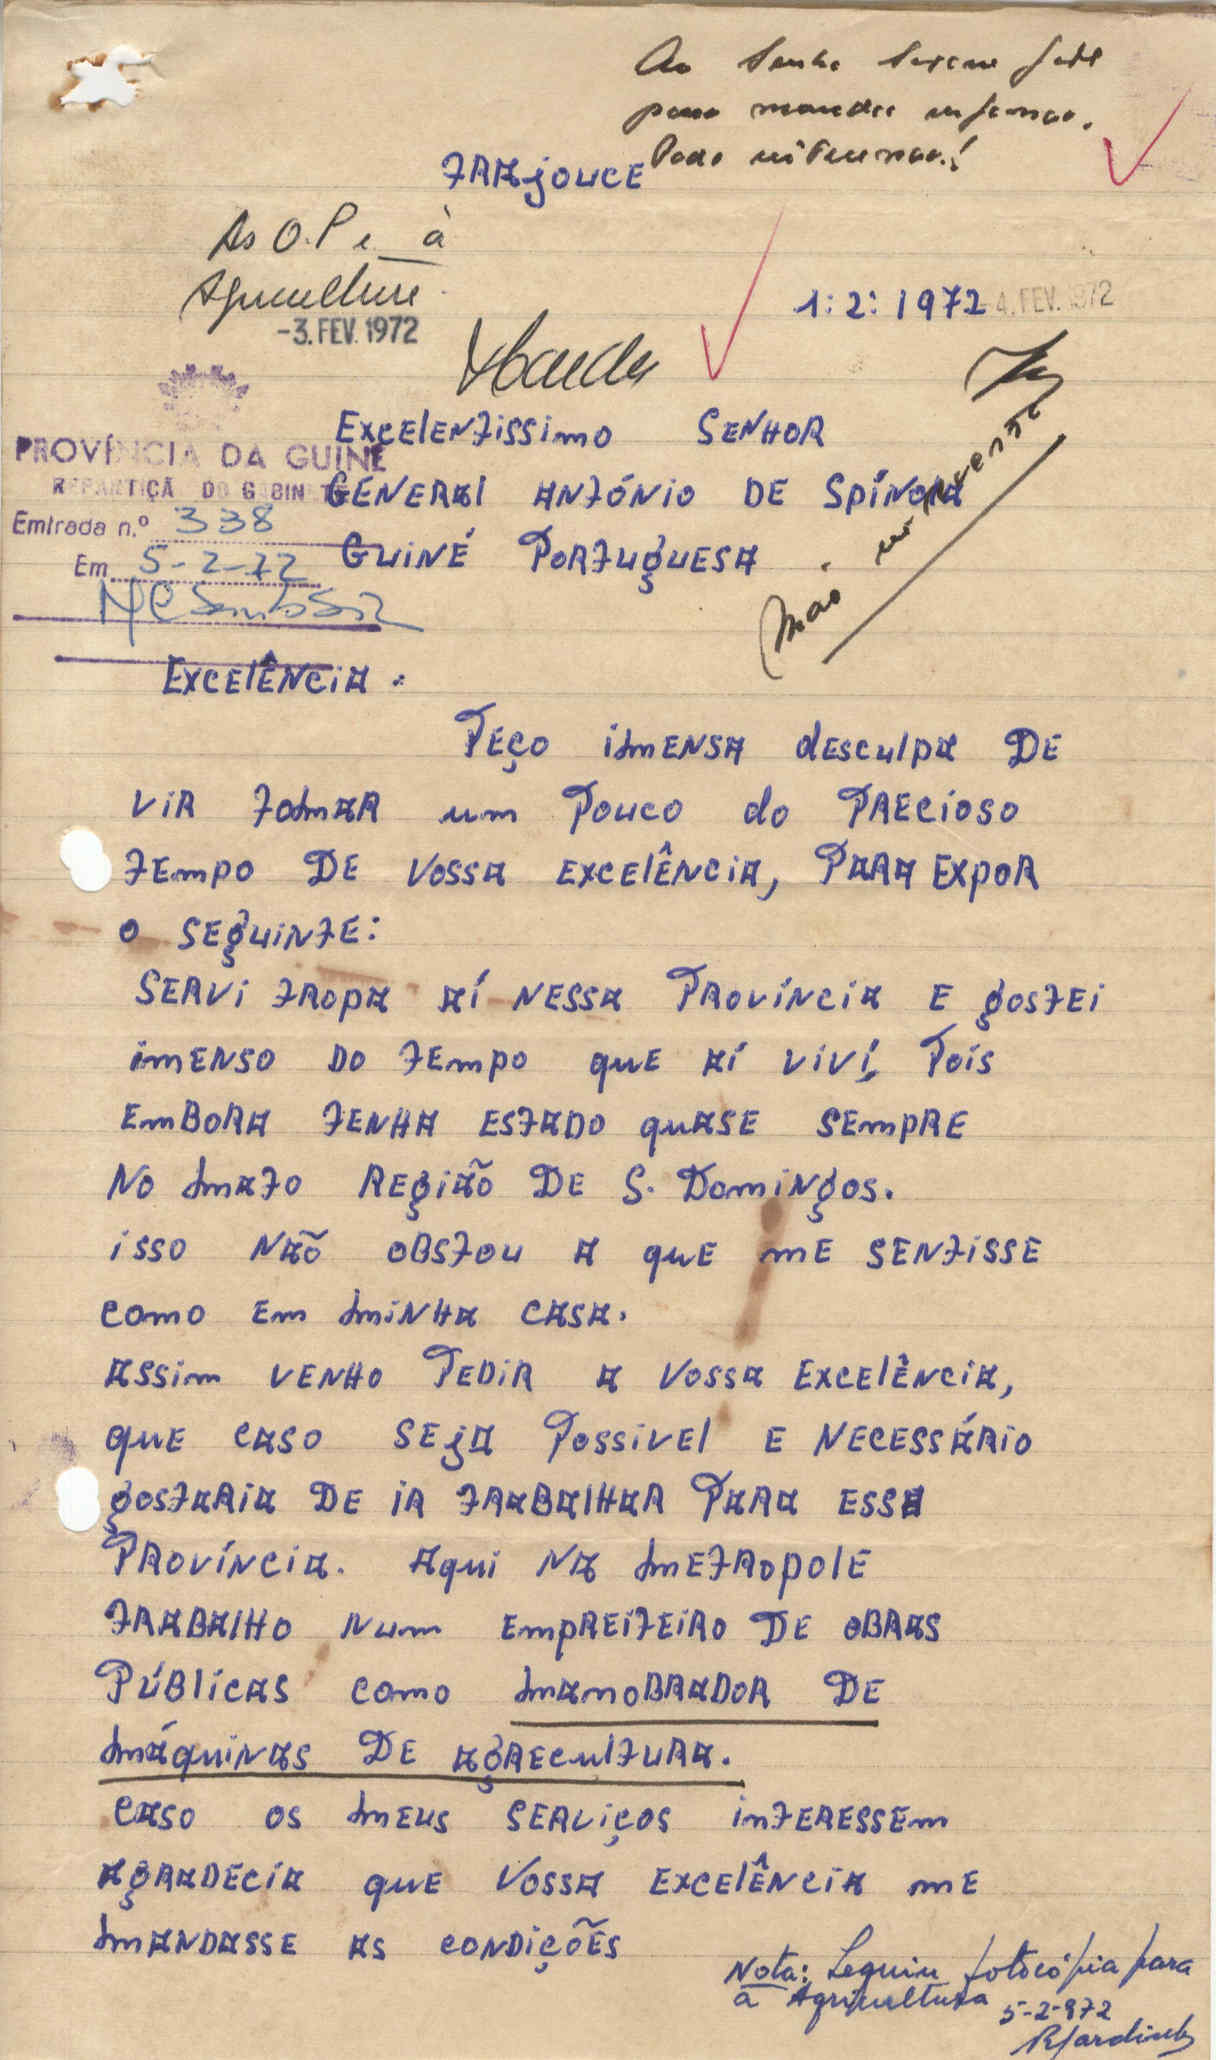 Ao Senhor
para mandar informar.
TRAjOUCE
As O.P. e à
Agricultura
-3. FEV. 1972
1:2:1972
4. FEV. 1972
EXCElENTISSImo SENHOR
PROVÍNCIA DA GUINÉ
REPARTIÇÃ DO GABINETE
GENERAl ANTÓNIO DE SPÍNOlA
Entrada n.º 338
GUINÉ PORTUgUESA
Em 5-2-72
não
EXCElÊNCIA.
PEÇO imENSA dESCulpA DE
VIR TOmAR um POUCO do PRECIOSO
TEmpo DE VOSSA EXCElÊNCIA, PARA EXpOR
O SEgUINTE:
SERVI TROpA AÍ NESSA PROVÍNCIA E gOSTEI
imENSO DO TEmpO quE AÍ VIVÍ, POIS
EmBORA TENHA ESTADO quASE SEmpRE
NO mATO REgIÃO DE S. DOmINgOS.
iSSO NÃO OBSTOU A quE mE SENTISSE
COmO Em mINHA CASA.
ASSIm VENHO PEDIR A VOSSA EXCElÊNCIA,
quE CASO SEjA POSSIVEl E NECESSÁRIO
gOSTARIA DE IR TRABAlHAR PARA ESSA
PROVÍNCIA. AquI NA mETROpOlE
TRABAlHO Num EmpREITEIRO DE OBRAS
PÚBlICAS COmO mANOBRADOR DE
mÁquINAS DE AgRECulTURA.
CASO OS mEUS SERVIÇOS inTERESSEm
AgRADECIA quE VOSSA EXCElÊNCIA mE
mANDASSE AS CONDIÇÕES
Nota: Seguiu fotocópia para
a Agricultura 5-2-972